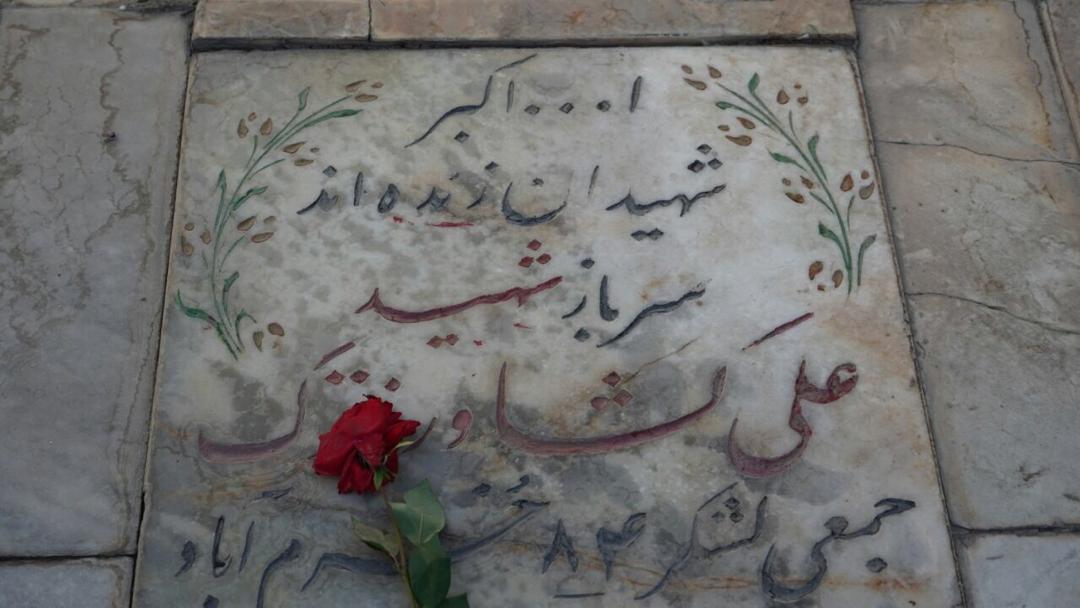 ا...اکبر
شهیدان زنده اند
سرباز شهید
علی
جمعی لشکر ۸۴ خرم آباد